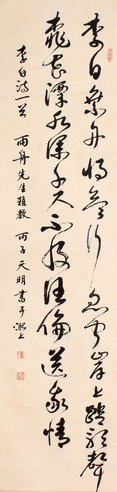 李白乘舟将欲行忽闻岸上踏歌声
桃花潭水深千尺不及汪伦送我情
李白诗一首 雨舟先生雅教 丙子天明书于